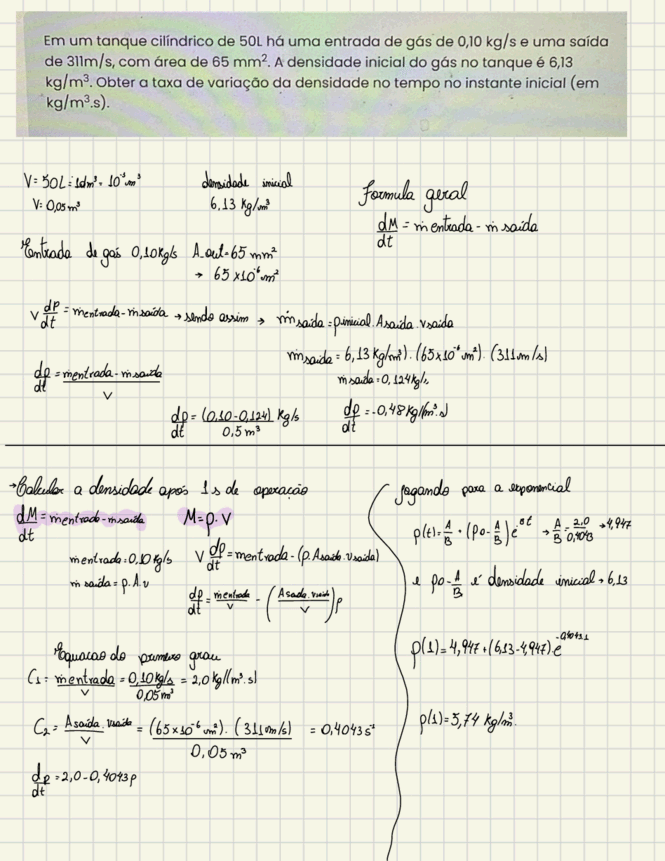 Em um tanque cilíndrico de 50L há uma entrada de gás de 0,10 kg/s e uma saída
de 311m/s, com área de 65 mm². A densidade inicial do gás no tanque é 6,13
kg/m³. Obter a taxa de variação da densidade no tempo no instante inicial (em
kg/m³.s).
V= 50L = 1dm³ = 10⁻³ m³
V: 0,05m³
densidade inicial
6,13 Kg/m³
Formula geral
dM/dt = ṁ entrada - ṁ saída
Entrada de gás 0,10Kg/s
A out = 65 mm²
→ 65 x10⁻⁶ m²
V dρ/dt = mentrada - msaída → sendo assim → ṁ saída = ρinicial . Asaída . vsaída
ṁ saída = 6,13 Kg/m³) . (65x10⁻⁶ m²) . (311m/s)
ṁ saída = 0,124kg/s
dρ/dt = mentrada - ṁ saída / V
dρ/dt = (0,10-0,124) Kg/s / 0,5 m³
dρ/dt = -0,48 Kg/(m³.s)
→ Calcular a densidade após 1s de operação
dM/dt = mentrada - msaída
M= ρ. V
mentrada = 0,10 Kg/s
ṁ saída = ρ. A. v
V dρ/dt = mentrada - (ρ. Asaída. vsaída)
dρ/dt = mentrada / V - (Asaída. vsaída / V) ρ
Equacao do primeiro grau
C₁ = mentrada / V = 0,10Kg/s / 0,05m³ = 2,0 Kg/(m³.s)
C₂ = Asaída. vsaída / V = (65x10⁻⁶ m²) . (311m/s) / 0,05 m³ = 0,4043 s⁻¹
dρ/dt = 2,0 - 0,4043ρ
jogando para a exponencial
ρ(t) = A/B + (ρo - A/B) e⁻ᴮᵗ → A/B = 2,0/0,4043 → 4,947
e ρo - A/B é densidade inicial → 6,13
ρ(1) = 4,947 + (6,13 - 4,947) e⁻⁰'⁴⁰⁴³·¹
ρ(1) = 5,74 kg/m³.